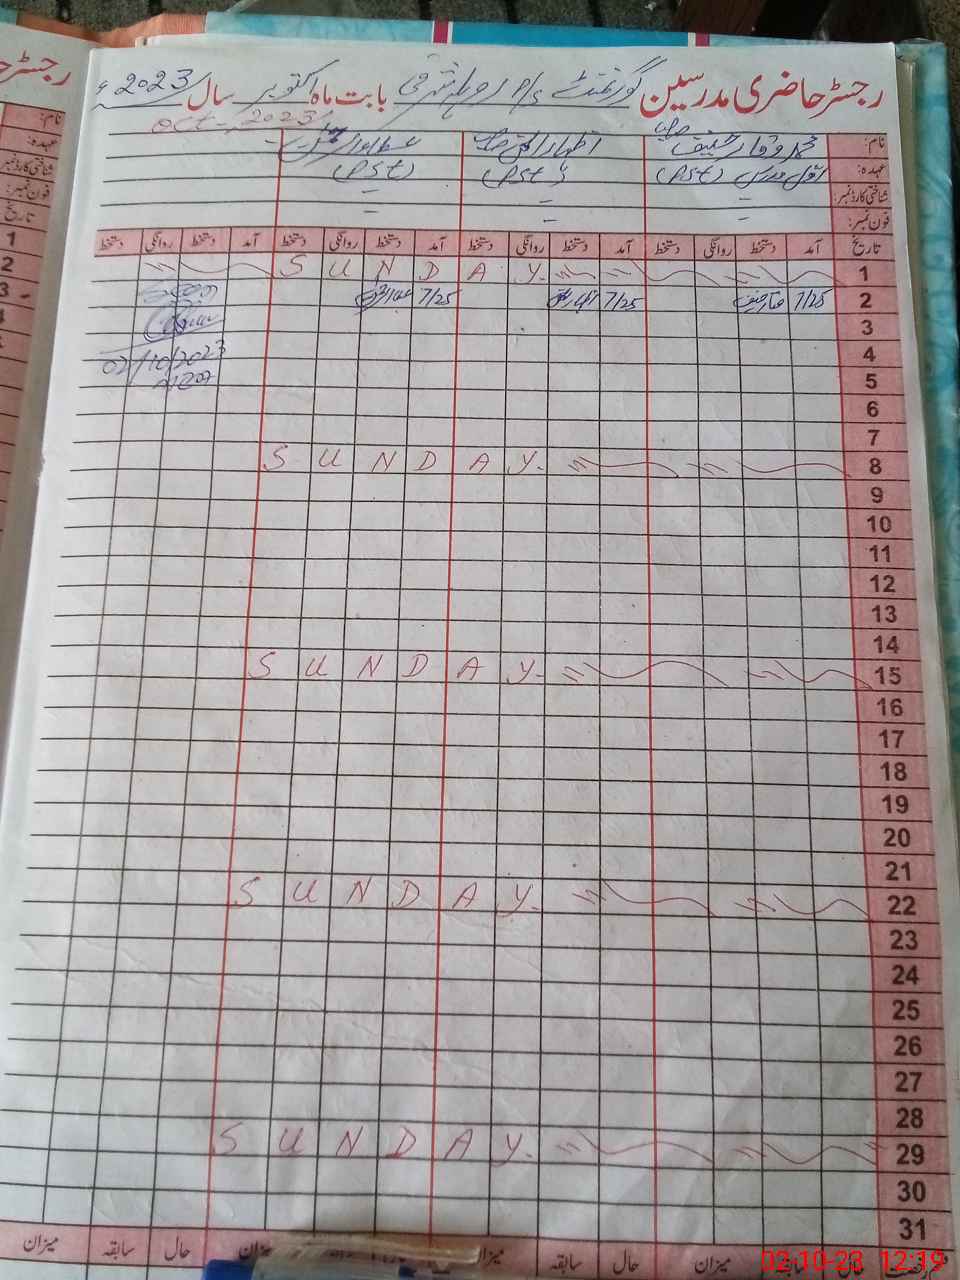 رجسٹر حاضری مدرسین گورنمنٹ P/S بابت ماہ اکتوبر سال 2023ء
oct-2023
نام: محمد وقار حنیف صاحب
عہدہ: اول مدرس (PST) (PST) (PST)
شناختی کارڈ نمبر: - - -
فون نمبر: - - -
تاریخ آمد دستخط روانگی دستخط آمد دستخط روانگی دستخط آمد دستخط روانگی دستخط آمد دستخط روانگی دستخط
1 S U N D A Y
2 7/25 7/25 7/25
3
4 02/10/2023
5
6
7
8 S U N D A Y
9
10
11
12
13
14
15 S U N D A Y
16
17
18
19
20
21
22 S U N D A Y
23
24
25
26
27
28
29 S U N D A Y
30
31
حال سابقہ میزان حال سابقہ میزان حال سابقہ میزان
02-10-23 12:19
رجسٹر حا
نام:
عہدہ:
شناختی کارڈ نمبر:
فون نمبر:
تاریخ
1
2
3